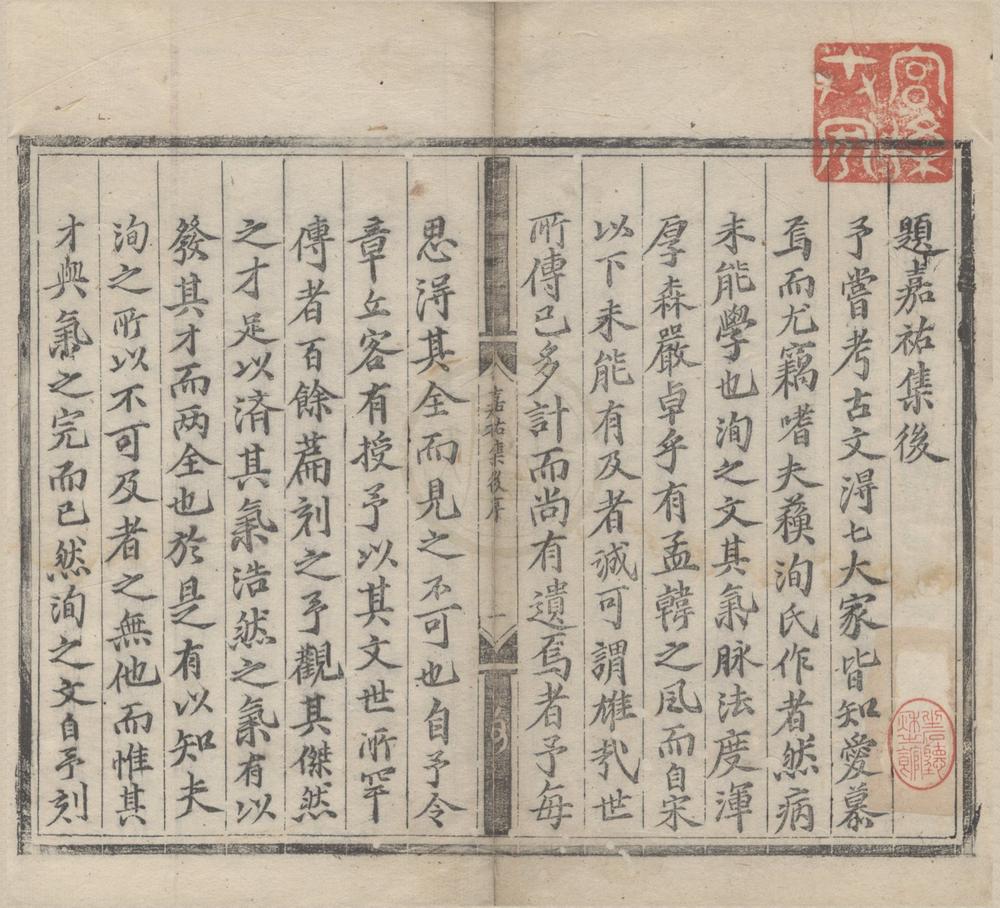 題嘉祐集後
予嘗考古文淂七大家皆知愛慕
焉而尤竊嗜夫蘓洵氏作者然病
未能學也洵之文其氣脉法度渾
厚森嚴卓乎有孟韓之風而自宋
以下未能有及者誠可謂雄㦲世
所傳已多計而尚有遺焉者予每
嘉祐集後序
一
思淂其全而見之不可也自予令
章丘客有授予以其文世所罕
傳者百餘篇刻之予觀其傑然
之才足以済其氣浩然之氣有以
發其才而两全也於是有以知夫
洵之所以不可及者之無他而惟其
才與氣之完而已然洵之文自予刻